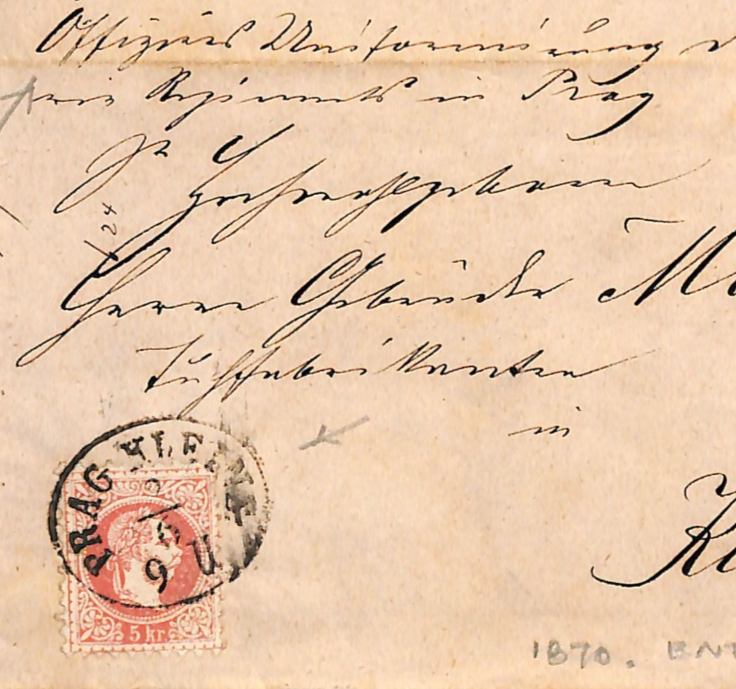 Offiziers Uniformirung
Regiments in Prag
Sr
Hochwohlgeboren
1/24
Herrn Gebrüder
Tuchfabrikanten
in
PRAG KLEINS
9 U
5 kr.
1870.